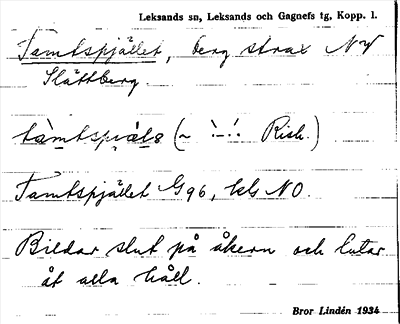 Leksands sn, Leksands och Gagnefs tg, Kopp. l.
Tamtspjället, berg strax NV
Slättberg.
(~ Risb.)
Tamtspjället G96, kbl NO.
Bildar slut på åkern och lutar
åt alla håll.
Bror Lindén 1934